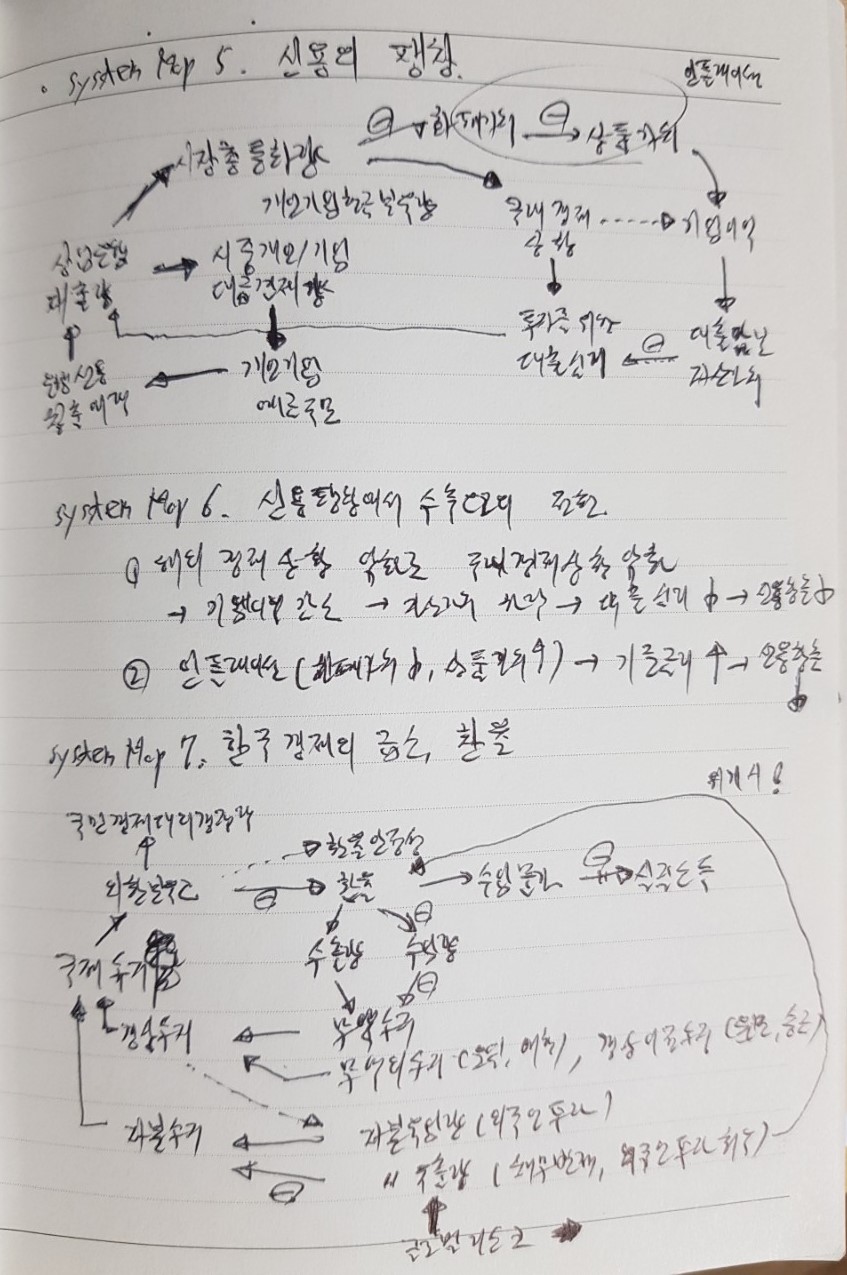 System Map 5. 신용의 팽창.
인플레이션
시장총통화량 ⊖ 화폐가치 ⊖ 상품가치
개인기업현금보유량
국내경제
상황
기업이익
상업은행
대출량
시중개인/기업
대금결제량
투자를 위한
대출심리
⊖
대출담보
자산가치
은행신용
창출여력
개인기업
예금규모
System Map 6. 신용팽창에서 수축으로의 전환.
① 해외 경제 상황 악화로 국내경제상황 악화
→ 기업이익 감소 → 자산가치 하락 → 대출심리 ↓ → 신용창출↓
② 인플레이션 (화폐가치 ↓, 상품가치↑) → 기준금리 ↑ → 신용창출
↓
System Map 7. 한국경제의 급소, 환율
위기시!
국민경제대리경쟁력
환율안정성
외환보유고 ⊖ 환율 → 수입물가 ⊖ 실질소득
⊖
수출량 수입량
국제수지
⊖
경상수지 무역수지
무역외수지 (로열, 여행), 경상이전수지 (원조, 송금)
자본수지 자본유입량 (외국인 투자)
〃 유출량 (채무변제, 외국인 투자 회수)
⊖
글로벌 리스크